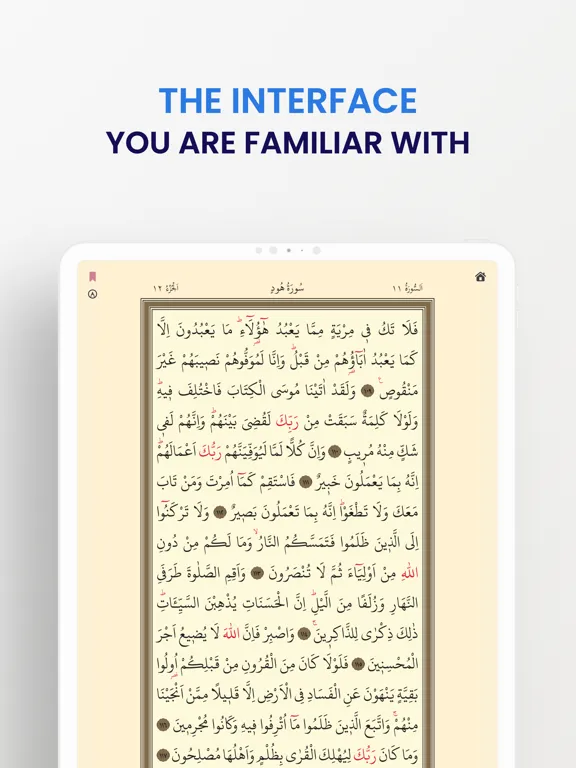 THE INTERFACE
YOU ARE FAMILIAR WITH
اَلسُّورَةُ ١١
سُورَةُ هُودٍ
اَلْجُزْءُ ١٢
فَلَا تَكُ فٖى مِرْيَةٍ مِمَّا يَعْبُدُ هٰٓؤُ۬لَٓاءِۜ مَا يَعْبُدُونَ اِلَّا
كَمَا يَعْبُدُ اٰبَٓاؤُ۬هُمْ مِنْ قَبْلُۜ وَاِنَّا لَمُوَفُّوهُمْ نَصٖيبَهُمْ غَيْرَ
مَنْقُوصٍۚ ﴿١٠٩﴾ وَلَقَدْ اٰتَيْنَا مُوسَى الْكِتَابَ فَاخْتُلِفَ فٖيهِۜ
وَلَوْلَا كَلِمَةٌ سَبَقَتْ مِنْ رَبِّكَ لَقُضِىَ بَيْنَهُمْۜ وَاِنَّهُمْ لَفٖى
شَكٍّ مِنْهُ مُرٖيبٍ ﴿١١٠﴾ وَاِنَّ كُلًّا لَمَّا لَيُوَفِّيَنَّهُمْ رَبُّكَ اَعْمَالَهُمْۜ
اِنَّهُ بِمَا يَعْمَلُونَ خَبٖيرٌ ﴿١١١﴾ فَاسْتَقِمْ كَمَٓا اُمِرْتَ وَمَنْ تَابَ
مَعَكَ وَلَا تَطْغَوْاۜ اِنَّهُ بِمَا تَعْمَلُونَ بَصٖيرٌ ﴿١١٢﴾ وَلَا تَرْكَنُٓوا
اِلَى الَّذٖينَ ظَلَمُوا فَتَمَسَّكُمُ النَّارُۙ وَمَا لَكُمْ مِنْ دُونِ
اللّٰهِ مِنْ اَوْلِيَٓاءَ ثُمَّ لَا تُنْصَرُونَ ﴿١١٣﴾ وَاَقِمِ الصَّلٰوةَ طَرَفَىِ
النَّهَارِ وَزُلَفًا مِنَ الَّيْلِۜ اِنَّ الْحَسَنَاتِ يُذْهِبْنَ السَّيِّـَٔاتِۜ
ذٰلِكَ ذِكْرٰى لِلذَّاكِرٖينَۚ ﴿١١٤﴾ وَاصْبِرْ فَاِنَّ اللّٰهَ لَا يُضٖيعُ اَجْرَ
الْمُحْسِنٖينَ ﴿١١٥﴾ فَلَوْلَا كَانَ مِنَ الْقُرُونِ مِنْ قَبْلِكُمْ اُو۬لُوا
بَقِيَّةٍ يَنْهَوْنَ عَنِ الْفَسَادِ فِى الْاَرْضِ اِلَّا قَلٖيلًا مِمَّنْ اَنْجَيْنَا
مِنْهُمْۚ وَاتَّبَعَ الَّذٖينَ ظَلَمُوا مَٓا اُتْرِفُوا فٖيهِ وَكَانُوا مُجْرِمٖينَ ﴿١١٦﴾
وَمَا كَانَ رَبُّكَ لِيُهْلِكَ الْقُرٰى بِظُلْمٍ وَاَهْلُهَا مُصْلِحُونَ ﴿١١٧﴾